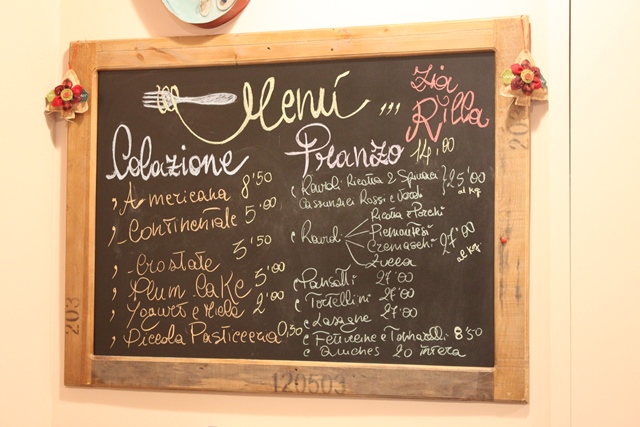 Menú ,,,
Zia
Rilla
Colazione
, Americana 8'50
, Continentale 5'00
, Crostate 3'50
, Plum Cake 3'00
, Yogurt e Miele 2'00
, Piccola Pasticceria 0,50
Pranzo 14'00
Ravioli Ricotta e Spinaci
Casunziei Rossi e Verdi
25'00
al kg
Ravioli
Ricotta e Porchi
Piemontesi
Cremaschi
Zucca
27'00
al kg
Pansotti 27'00
Tortellini 27'00
Lasagne 27'00
Fettuccine e Tonnarelli 8'50
Quiches 20 intera
203
203
120503